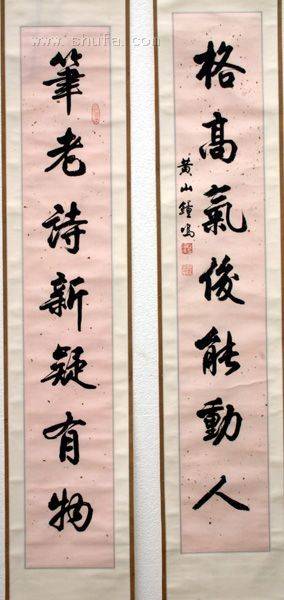 筆老詩新疑有物
格高氣俊能動人
黄山鐘鳴
www.shufa.com